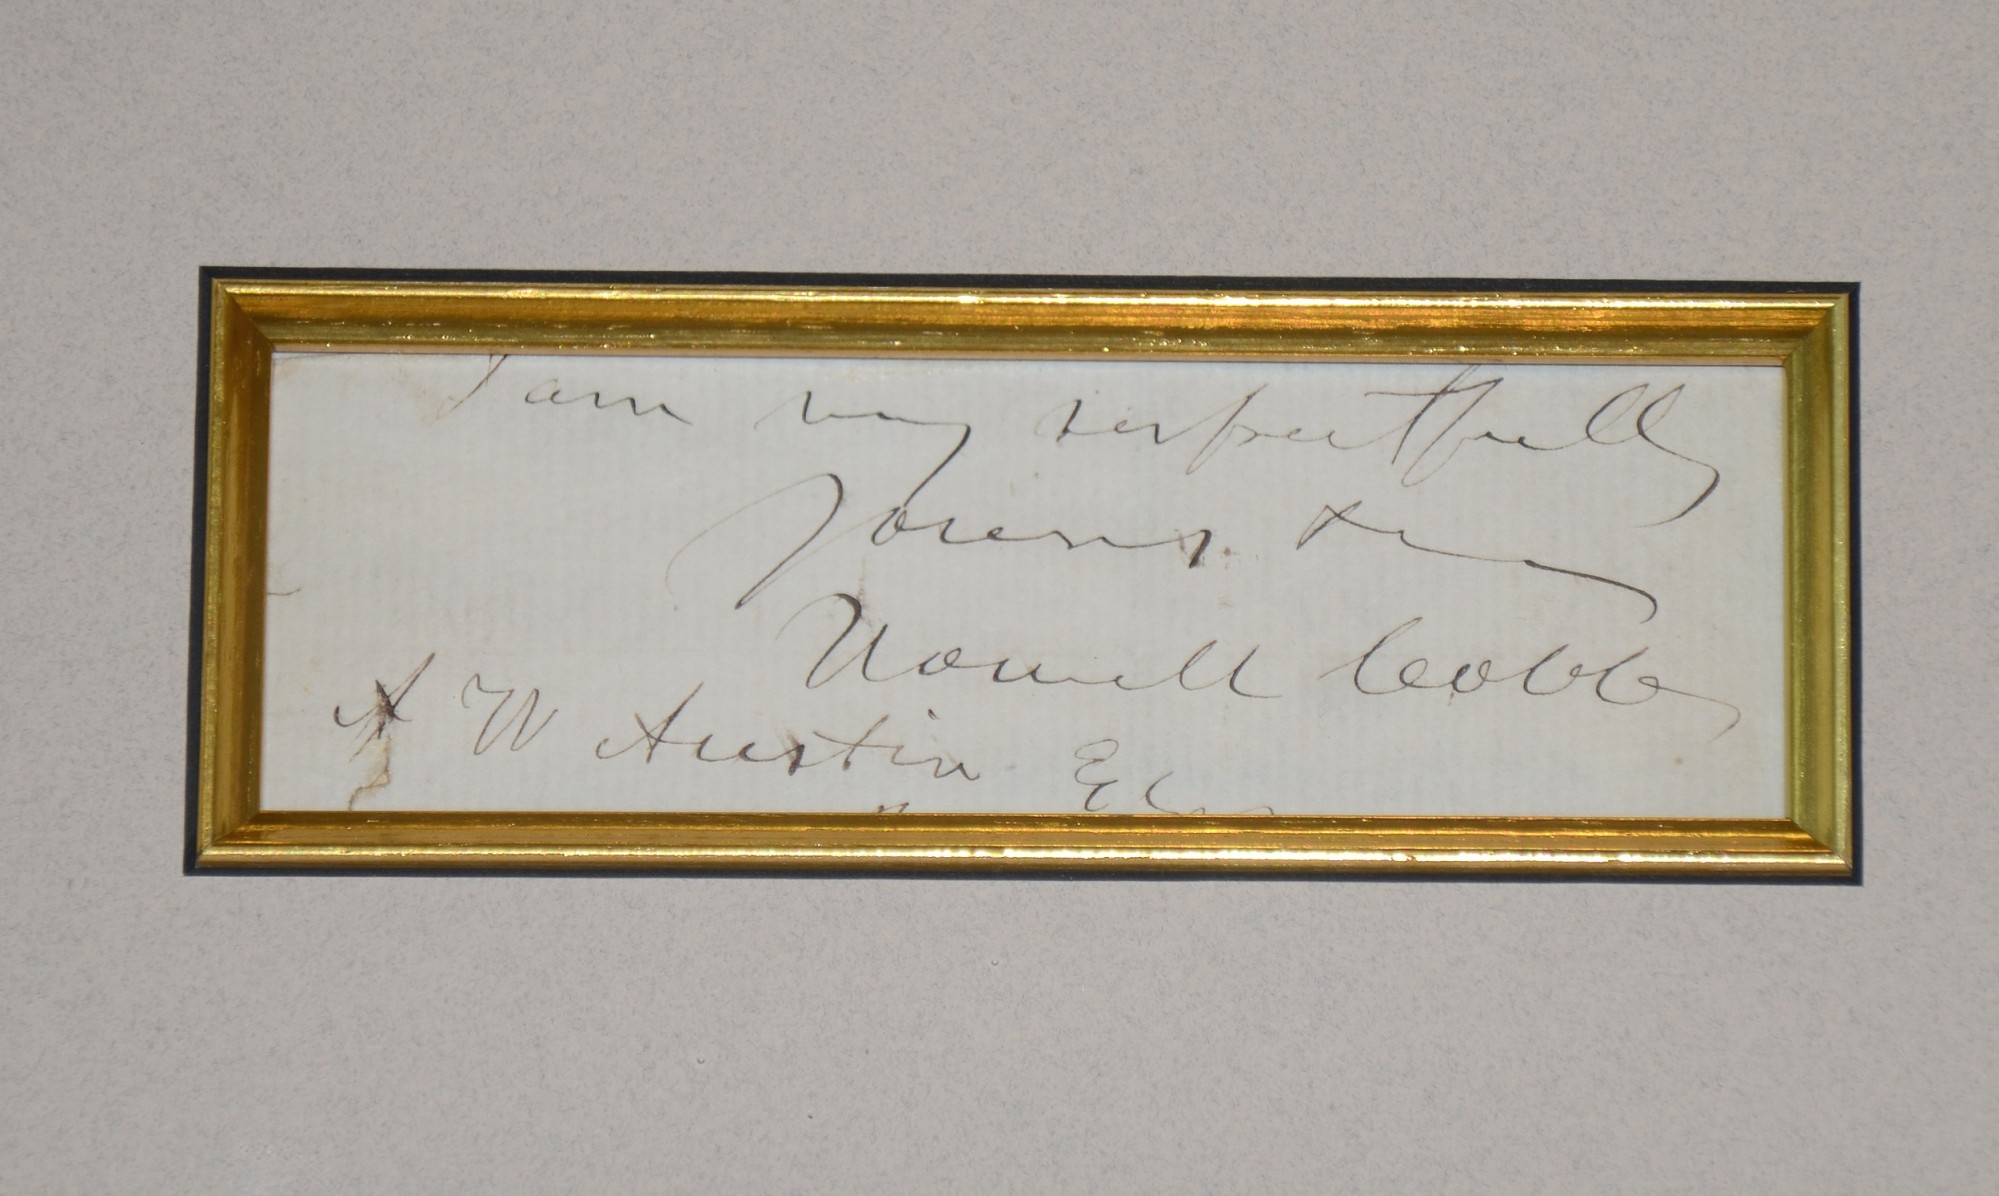 I am very respectfully
Yours &c
Howell Cobb
A W Austin Esq